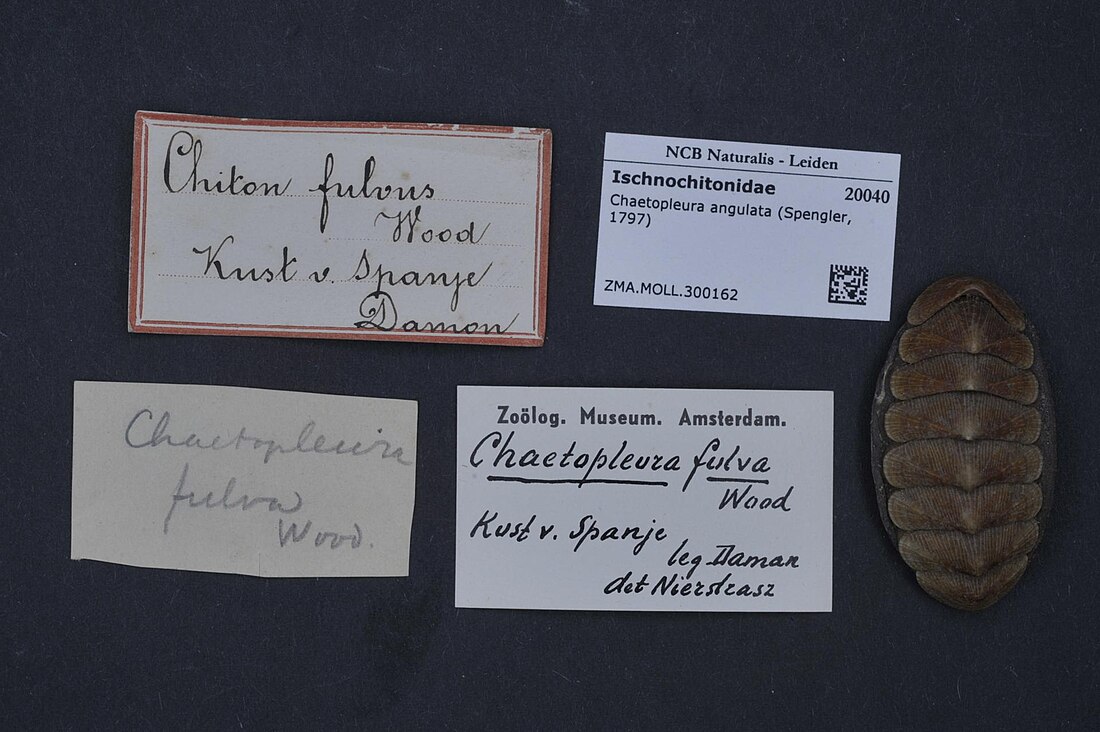 Chiton fulvus
Wood
Kust v. Spanje
Damon
NCB Naturalis - Leiden
Ischnochitonidae
20040
Chaetopleura angulata (Spengler,
1797)
ZMA.MOLL.300162
Chaetopleura
fulva
Wood.
Zoölog. Museum. Amsterdam.
Chaetopleura fulva
Wood
Kust v. Spanje
leg Daman
det Nierstrasz